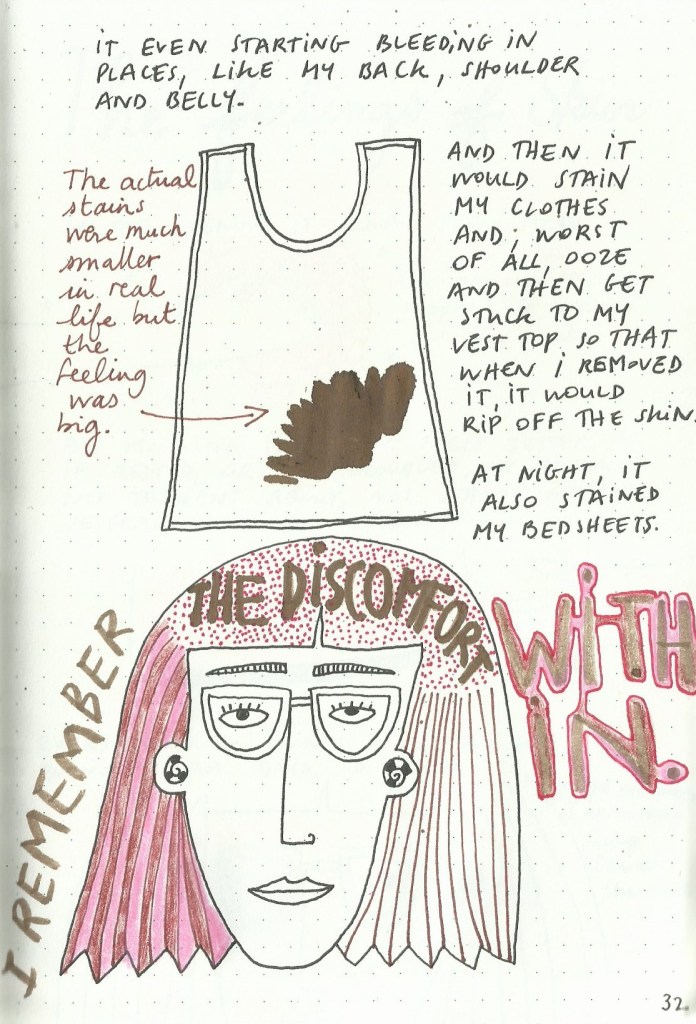 IT EVEN STARTING BLEEDING IN
PLACES, LIKE MY BACK, SHOULDER
AND BELLY.
The actual
stains
were much
smaller
in real
life but
the
feeling
was
big.
AND THEN IT
WOULD STAIN
MY CLOTHES
AND, WORST
OF ALL, OOZE
AND THEN GET
STUCK TO MY
VEST TOP, SO THAT
WHEN I REMOVED
IT, IT WOULD
RIP OFF THE SKIN.
AT NIGHT, IT
ALSO STAINED
MY BEDSHEETS.
I REMEMBER
THE DISCOMFORT
WITH
IN.
32.